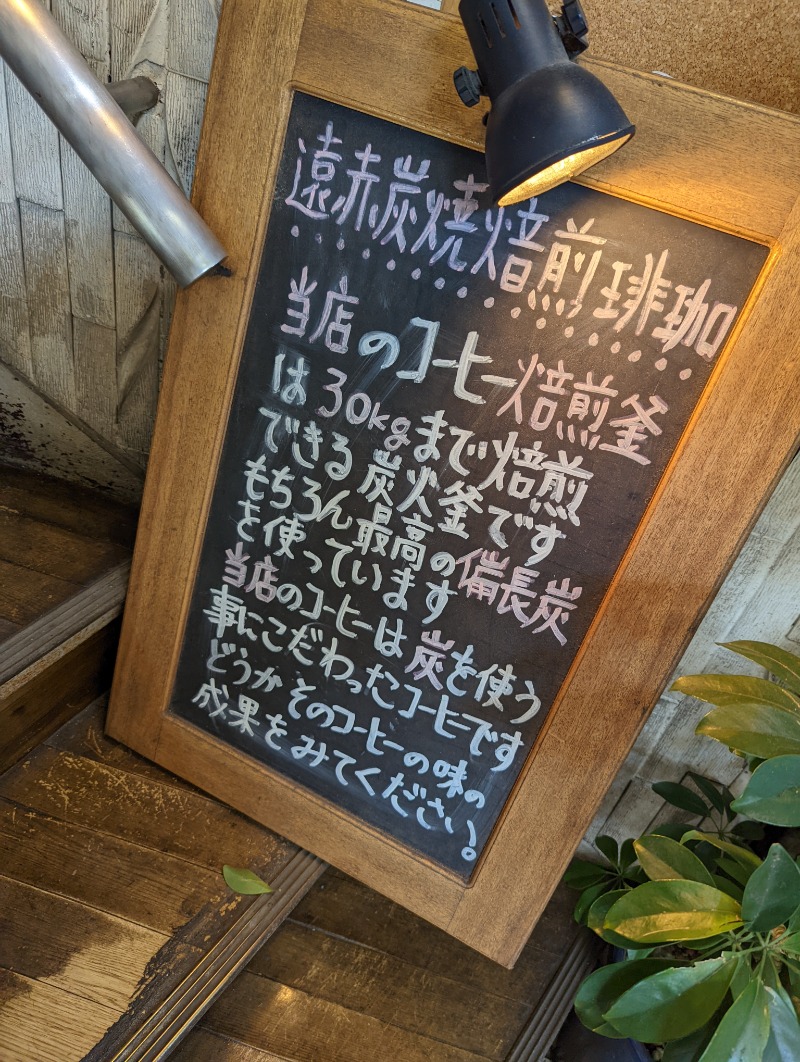 遠赤炭焼焙煎珈琲
当店のコーヒー焙煎釜
は30kgまで焙煎
できる炭火釜です
もちろん最高の備長炭
を使っています
当店のコーヒーは炭を使う
事にこだわったコーヒです
どうかそのコーヒーの味の
成果をみてください!